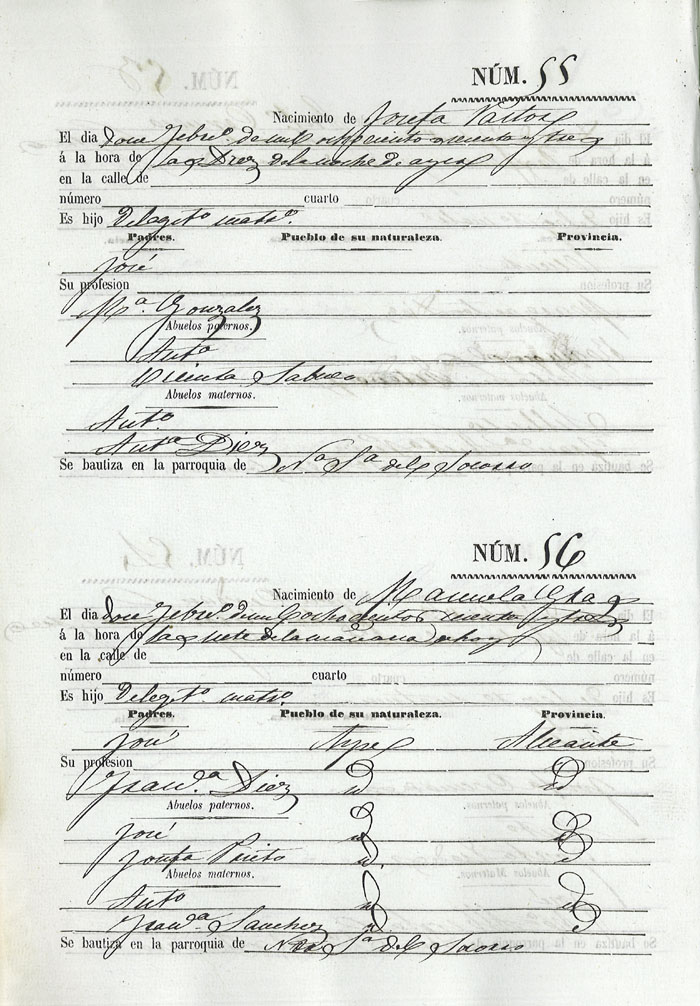 NÚM. 55
Nacimiento de Josefa Pastor
El dia doce Febro. de mil ochocientos sesenta y tres
á la hora de las Diez de la noche de ayer
en la calle de
número cuarto
Es hijo de legito. matrio.
Padres. Pueblo de su naturaleza. Provincia.
José
Su profesion
Ma. Gonzalez
Abuelos paternos.
Anto.
Vicenta
Abuelos maternos.
Anto.
Anta. Diez
Se bautiza en la parroquia de Na. Sa. del Socorro
NÚM. 56
Nacimiento de Manuela
El dia doce Febro. de mil ochocientos sesenta y tres
á la hora de las siete de la mañana de hoy
en la calle de
número cuarto
Es hijo de legito. matrio.
Padres. Pueblo de su naturaleza. Provincia.
José Aspe Alicante
Su profesion
Franca. Diez id id
Abuelos paternos.
José id id
Josefa Prieto id id
Abuelos maternos.
Anto. id id
Franca. Sanchez id id
Se bautiza en la parroquia de Ntra. Sa. del Socorro